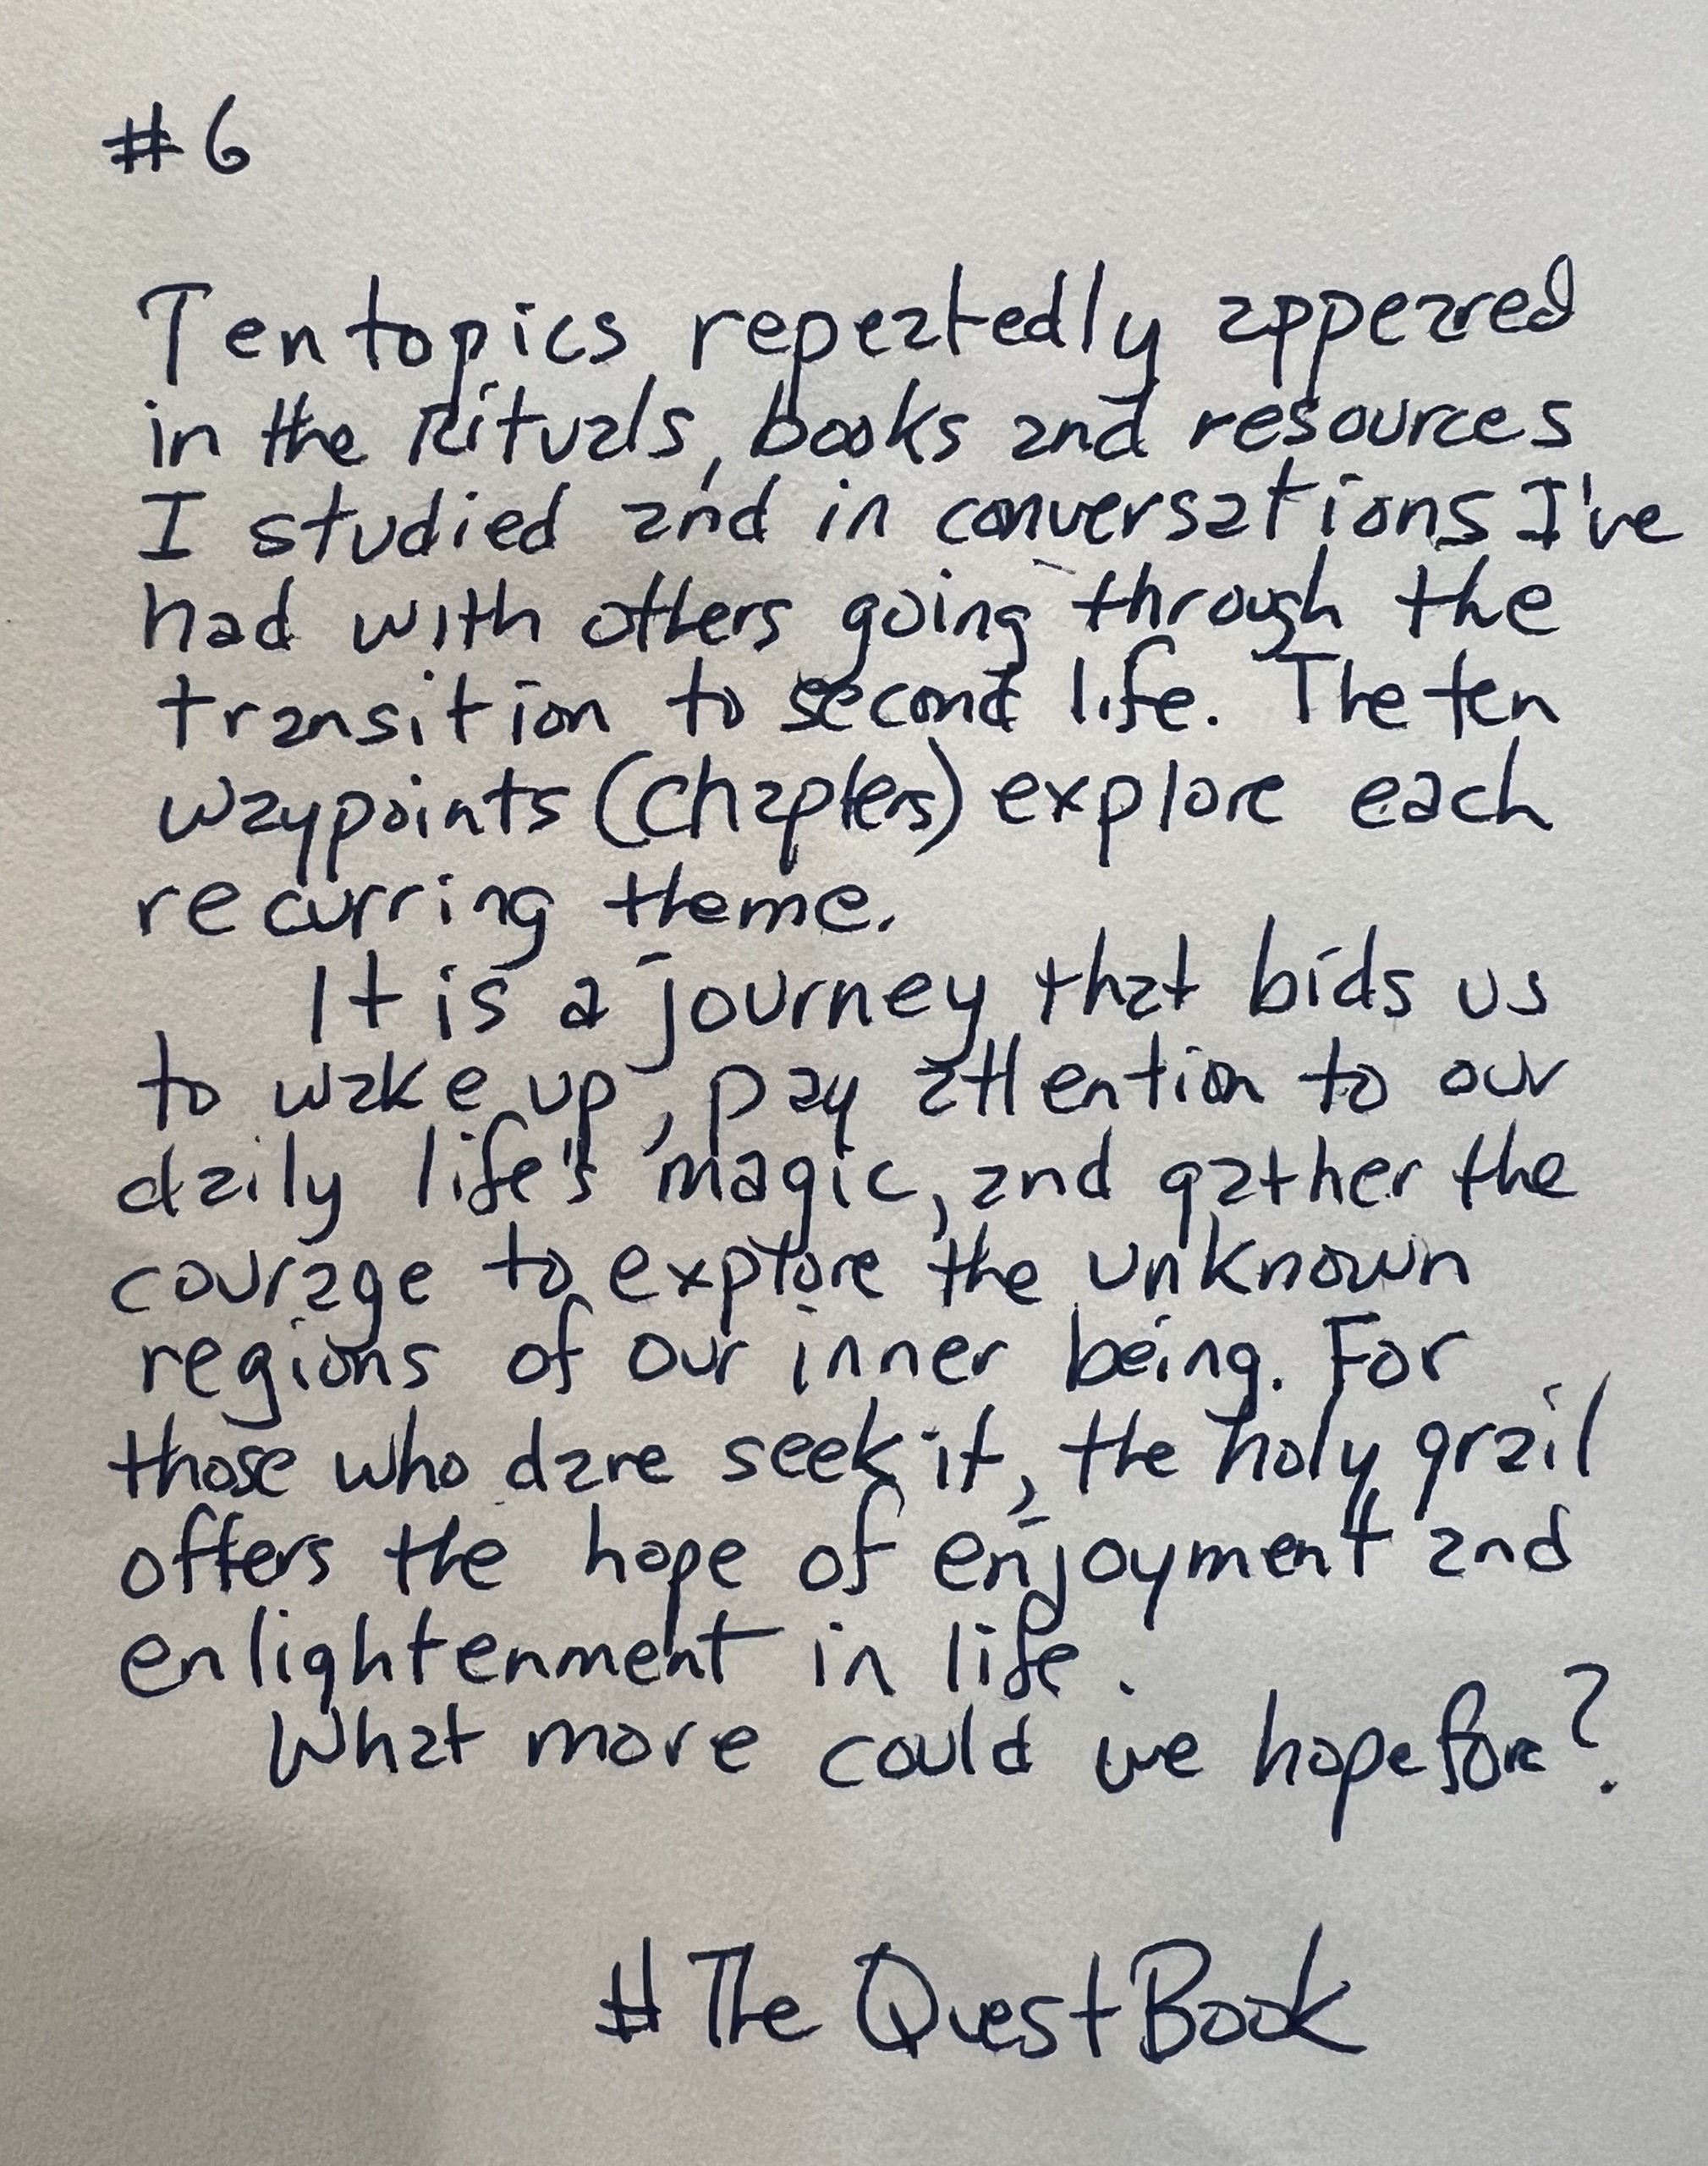 #6
Ten topics repeatedly appeared
in the Rituals, books and resources
I studied and in conversations I've
had with others going through the
transition to second life. The ten
waypoints (chapters) explore each
recurring theme.
It is a journey that bids us
to wake up, pay attention to our
daily life's magic, and gather the
courage to explore the unknown
regions of our inner being. For
those who dare seek it, the holy grail
offers the hope of enjoyment and
enlightenment in life.
What more could we hope fore?
#The QuestBook